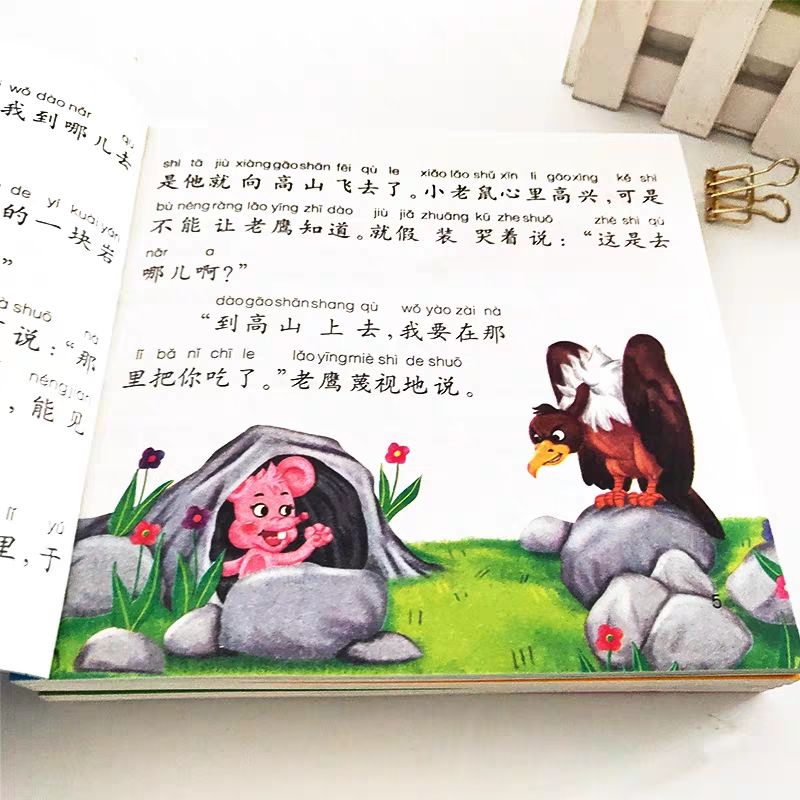 wǒ dào nǎr qù
我到哪儿去
de yí kuài yán
的一块岩
”
shuō nà
说：“那
néng jiàn
，能见
lǐ yú
里，于
shì tā jiù xiàng gāo shān fēi qù le xiǎo lǎo shǔ xīn lǐ gāo xìng kě shì
是他就向高山飞去了。小老鼠心里高兴，可是
bù néng ràng lǎo yīng zhī dào jiù jiǎ zhuāng kū zhe shuō zhè shì qù
不能让老鹰知道。就假装哭着说：“这是去
nǎr a
哪儿啊？”
dào gāo shān shang qù wǒ yào zài nà
“到高山上去，我要在那
lǐ bǎ nǐ chī le lǎo yīng miè shì de shuō
里把你吃了。”老鹰蔑视地说。
5